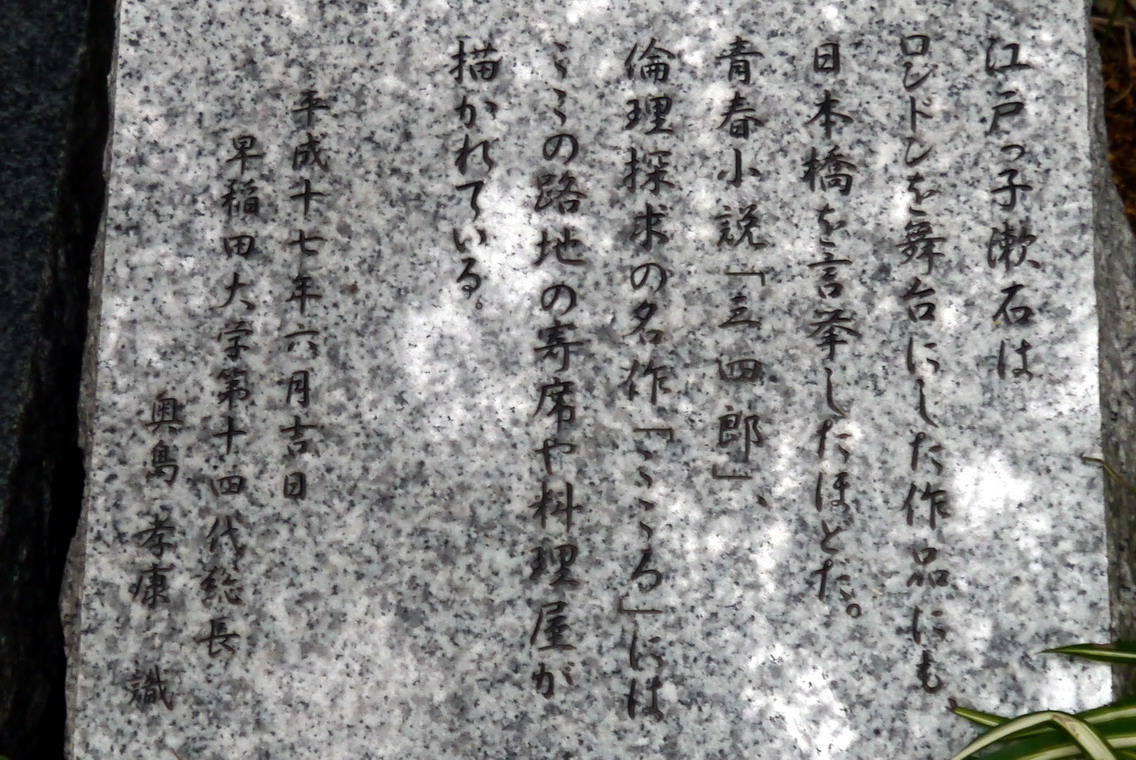 江戸っ子漱石は
ロンドンを舞台にした作品にも
日本橋を言挙したほどだ。
青春小説「三四郎」、
倫理探求の名作「こころ」には
ここの路地の寄席や料理屋が
描かれている。
平成十七年六月吉日
早稲田大学第十四代総長
奥島 孝康 識